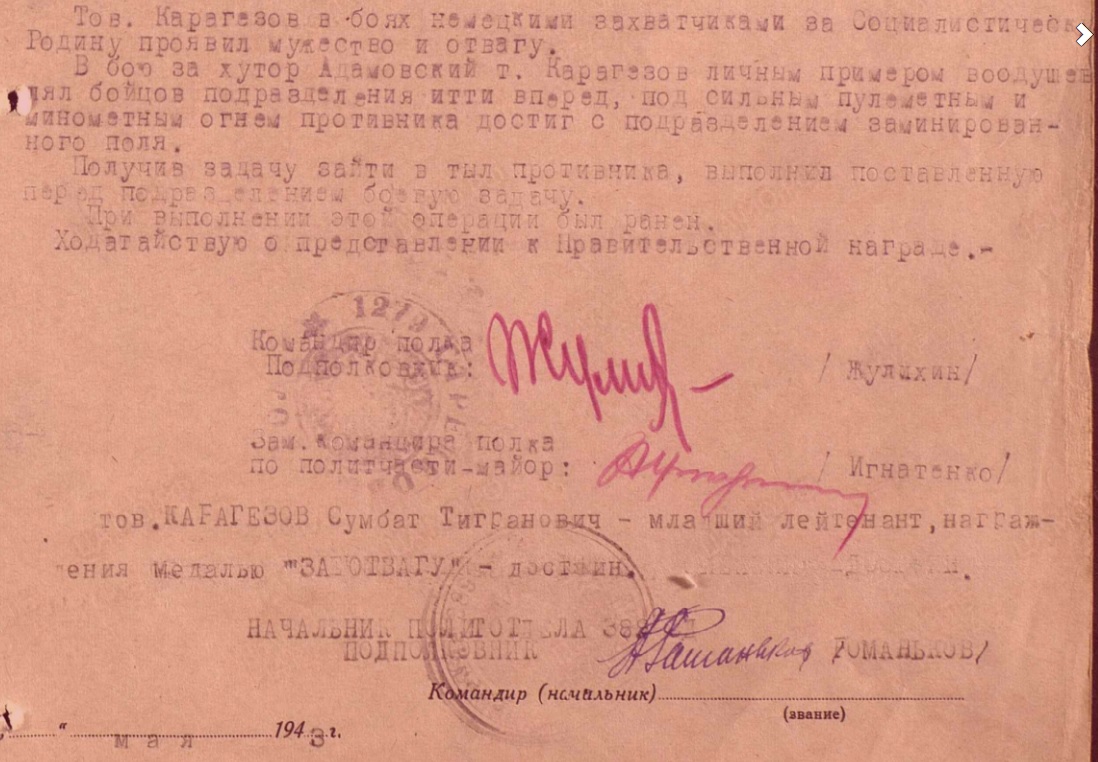 Тов. Карагезов в боях немецкими захватчиками за Социалистическ
Родину проявил мужество и отвагу.
В бою за хутор Адамовский т. Карагезов личным примером воодушев
лял бойцов подразделения итти вперед, под сильным пулеметным и
минометным огнем противника достиг с подразделением заминирован-
ного поля.
Получив задачу зайти в тыл противника, выполнил поставленную
перед подразделением боевую задачу.
При выполнении этой операции был ранен.
Ходатайствую о представлении к Правительственной награде.-
Командир полка
Подполковник: / Жулихин/
Зам.командира полка
по политчасти-майор: / Игнатенко/
тов.КАРАГЕЗОВ Сумбат Тигранович - младший лейтенант,награж-
дения медалью "ЗА ОТВАГУ" - достоин.
НАЧАЛЬНИК ПОЛИТОТДЕЛА
ПОДПОЛКОВНИК Романьков /РОМАНЬКОВ/
Командир (начальник)
(звание)
„ “ мая 1943 г.